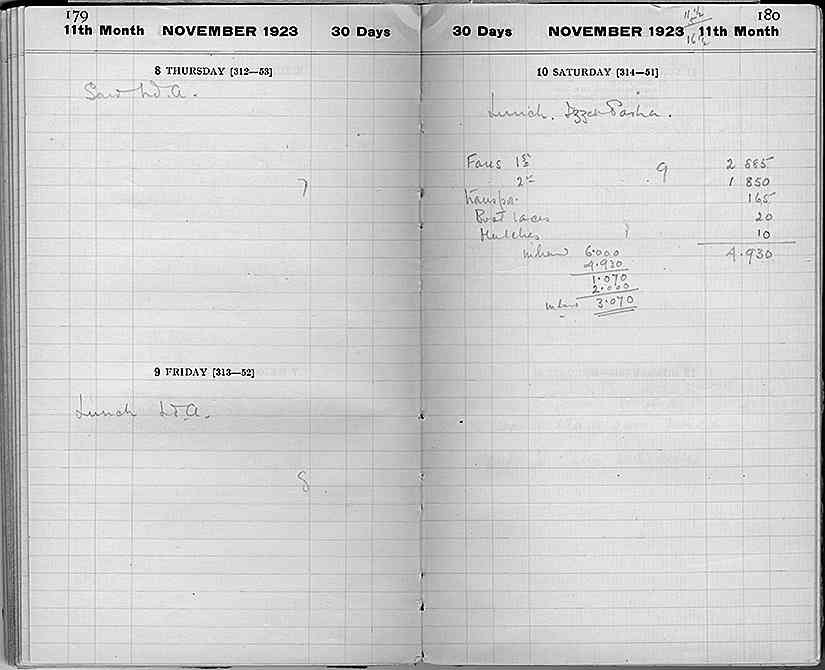 179
11th Month NOVEMBER 1923 30 Days
8 THURSDAY [312—53]
Saw W.A.
7
9 FRIDAY [313—52]
Lunch W.A.
8
180
30 Days NOVEMBER 1923 11th Month
10 SATURDAY [314—51]
Lunch. Izzet Pasha.
Fares 1st 2 885
2nd 9 1 850
Transpo. 165
Boot laces 20
Matches 10
4.930
in hand 6.000
4.930
1.070
2.000
3.070